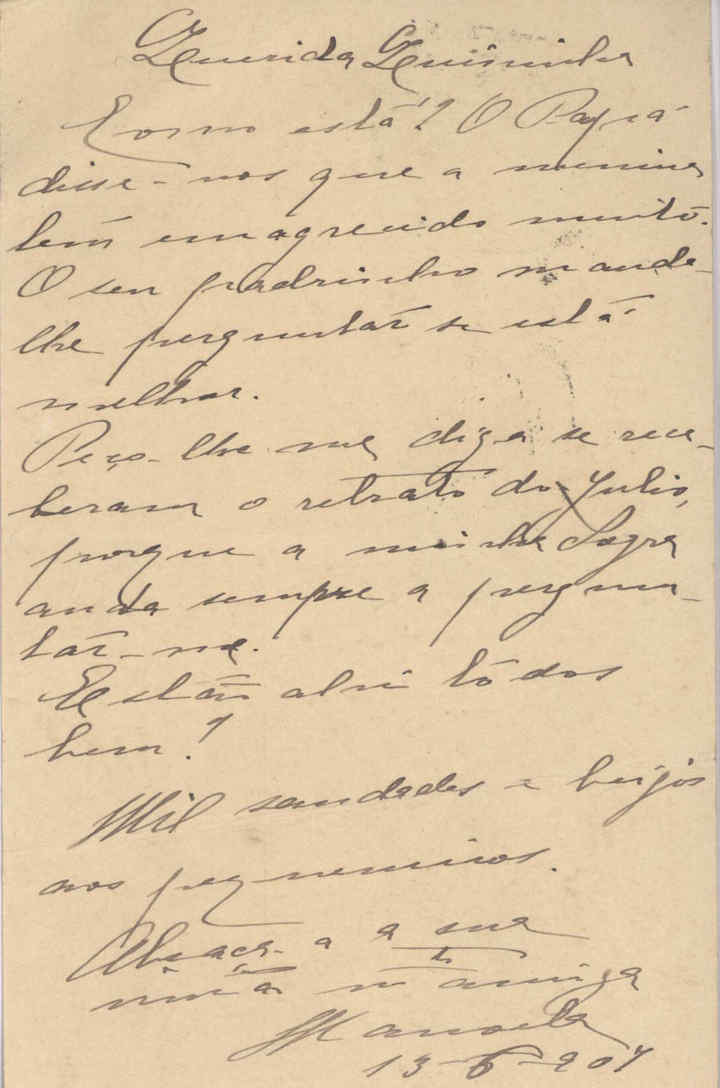 Querida Quininha
Como está? O Papá
disse-nos que a menina
tem emagrecido muito.
O seu padrinho manda-
lhe perguntar se está
melhor.
Peço-lhe me diga se rece-
beram o retrato do Julio,
porque a minha Sogra
anda sempre a pergun-
tar-me.
Estão ahi tôdos
bem?
Mil saudades e beijos
aos pequeninos.
Abraça-a a sua
irmã m.to amiga
Manoela
13-6-907